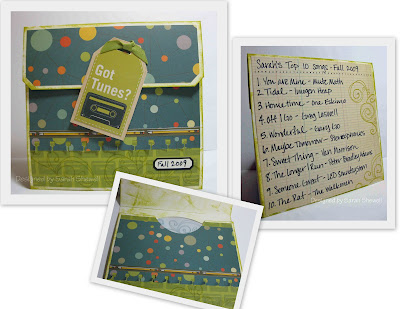 Got
Tunes?
Fall 2009
Designed by Sarah
Sarah's Top 10 songs - Fall 2009
1. You are Mine - Mute Math
2. Tidal - Imogen Heap
3. Hometime - One Eskimo
4. Off I Go - Greg Laswell
5. Wonderful - Gary Go
6. Maybe Tomorrow - Stereophonics
7. Sweet Thing - Van Morrison
8. The Longer I Run - Peter Bradley Adams
9. Someone Great - LCD Soundsystem
10. The Rat - The Walkmen
Designed by Sarah